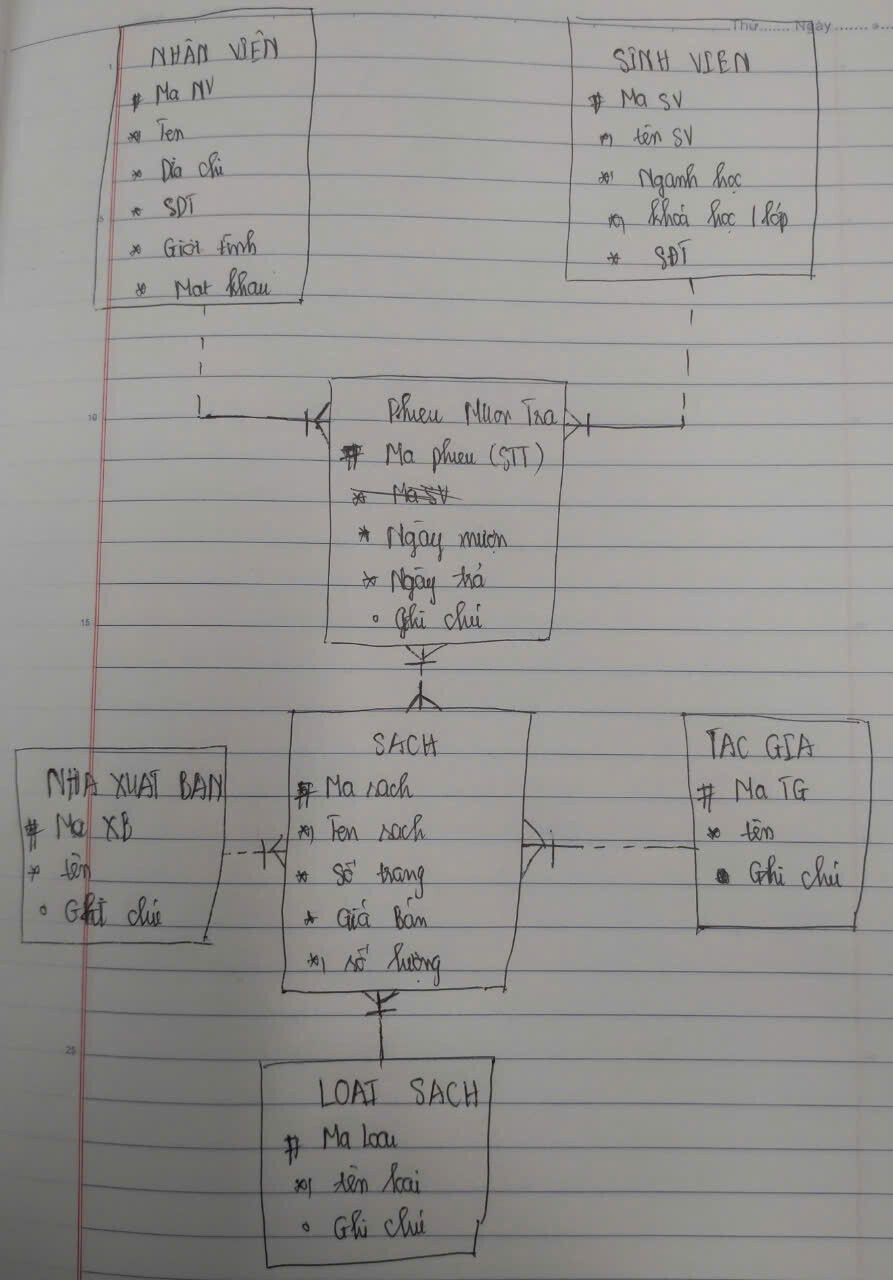 Thứ........ Ngày ........
NHÂN VIÊN
# Ma NV
* Ten
* Dia chi
* SDT
* Giới tính
* Mat khau
SINH VIEN
# Ma SV
* tên SV
* Nganh học
* khoá học / lớp
* SĐT
10
Phieu Muon Tra
# Ma phieu (STT)
* Ma SV
* Ngày mượn
* Ngày trả
o Ghi chú
15
SACH
# Ma sach
* Ten sach
* Số trang
* Giá Bán
* số lượng
NHA XUAT BAN
# Ma XB
* tên
o Ghi chú
TAC GIA
# Ma TG
* tên
● Ghi chú
25
LOAI SACH
# Ma loai
* tên loai
o Ghi chú